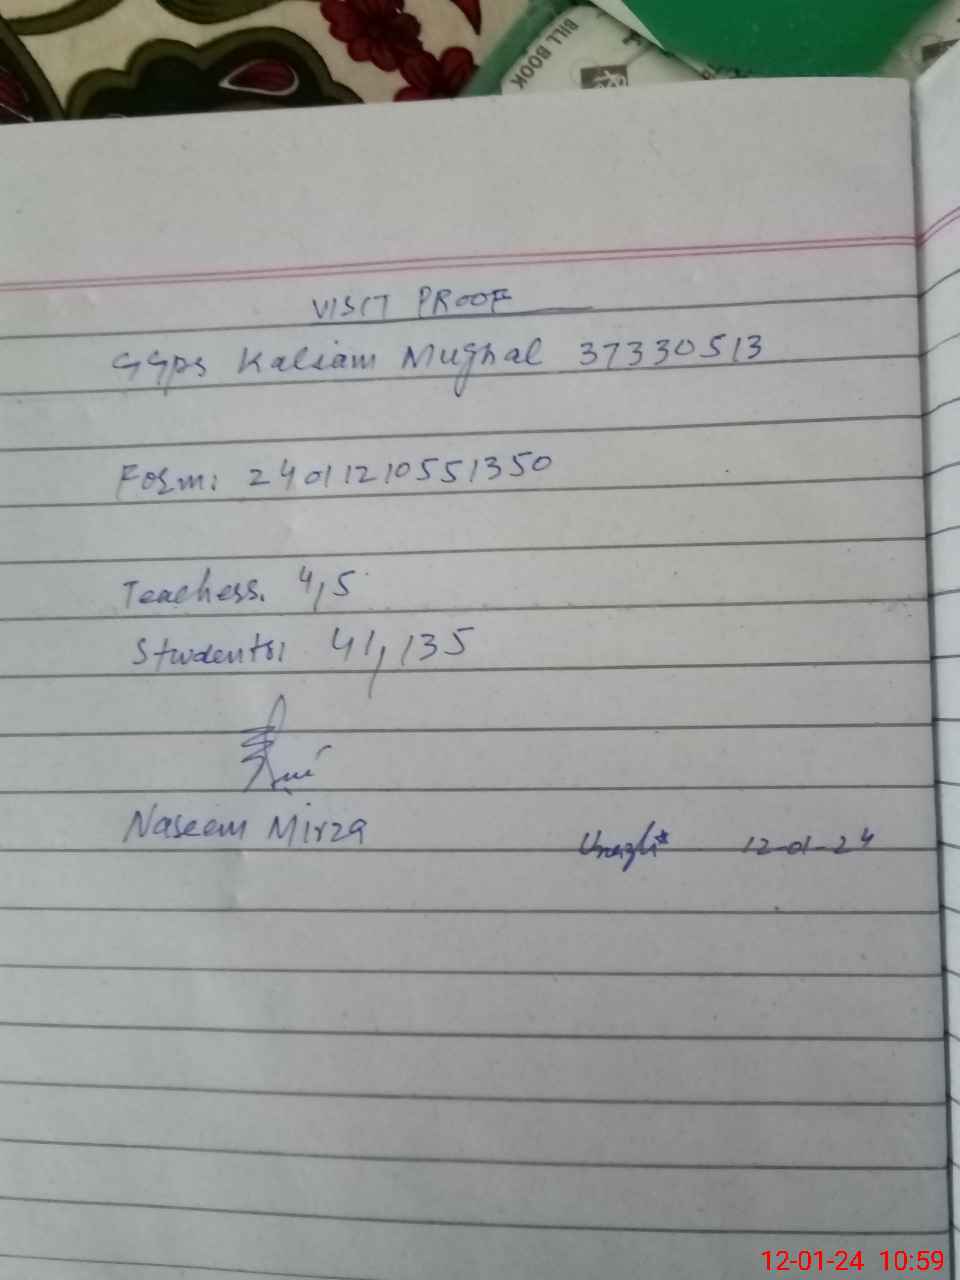 BILL BOOK
VISIT PROOF
GGPS Kaliam Mughal 37330513
Form: 24011210551350
Teachers. 4,5
Students: 41,135
Naseem Mirza
12-01-24
12-01-24 10:59